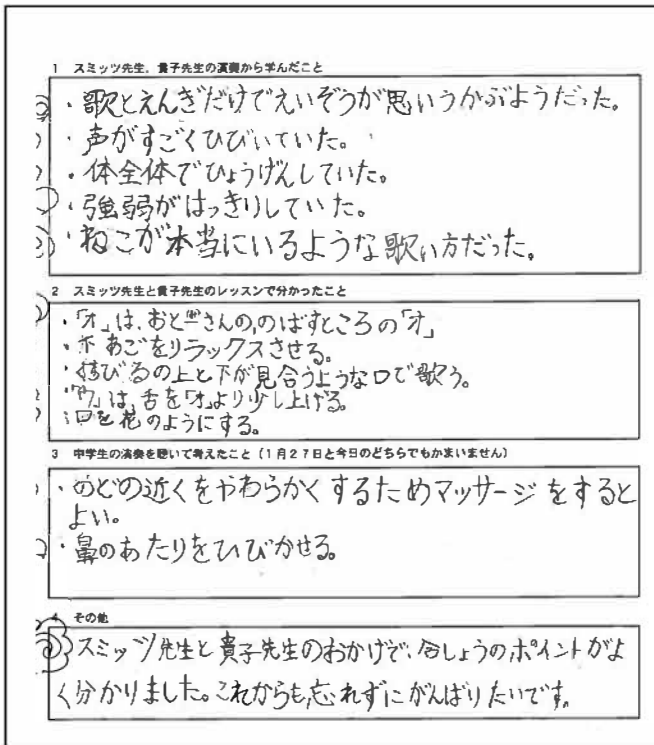 1 スミッツ先生,貴子先生の演奏から学んだこと
・歌とえんぎだけでえいぞうが思いうかぶようだった。
・声がすごくひびいていた。
・体全体でひょうげんしていた。
・強弱がはっきりしていた。
・ねこが本当にいるような歌い方だった。
2 スミッツ先生と貴子先生のレッスンで分かったこと
・「オ」は、おとーさんの、のばすところの「オ」
・下あごをリラックスさせる。
・くちびるの上と下が見合うような口で歌う。
は、舌を「オ」より少し上げる。
・口を花のようにする。
3 中学生の演奏を聴いて考えたこと(1月27日と今日のどちらでもかまいません)
・のどの近くをやわらかくするためマッサージをすると
よい。
・鼻のあたりをひびかせる。
4 その他
スミッツ先生と貴子先生のおかげで、合しょうのポイントがよ
く分かりました。これからも忘れずにがんばりたいです。